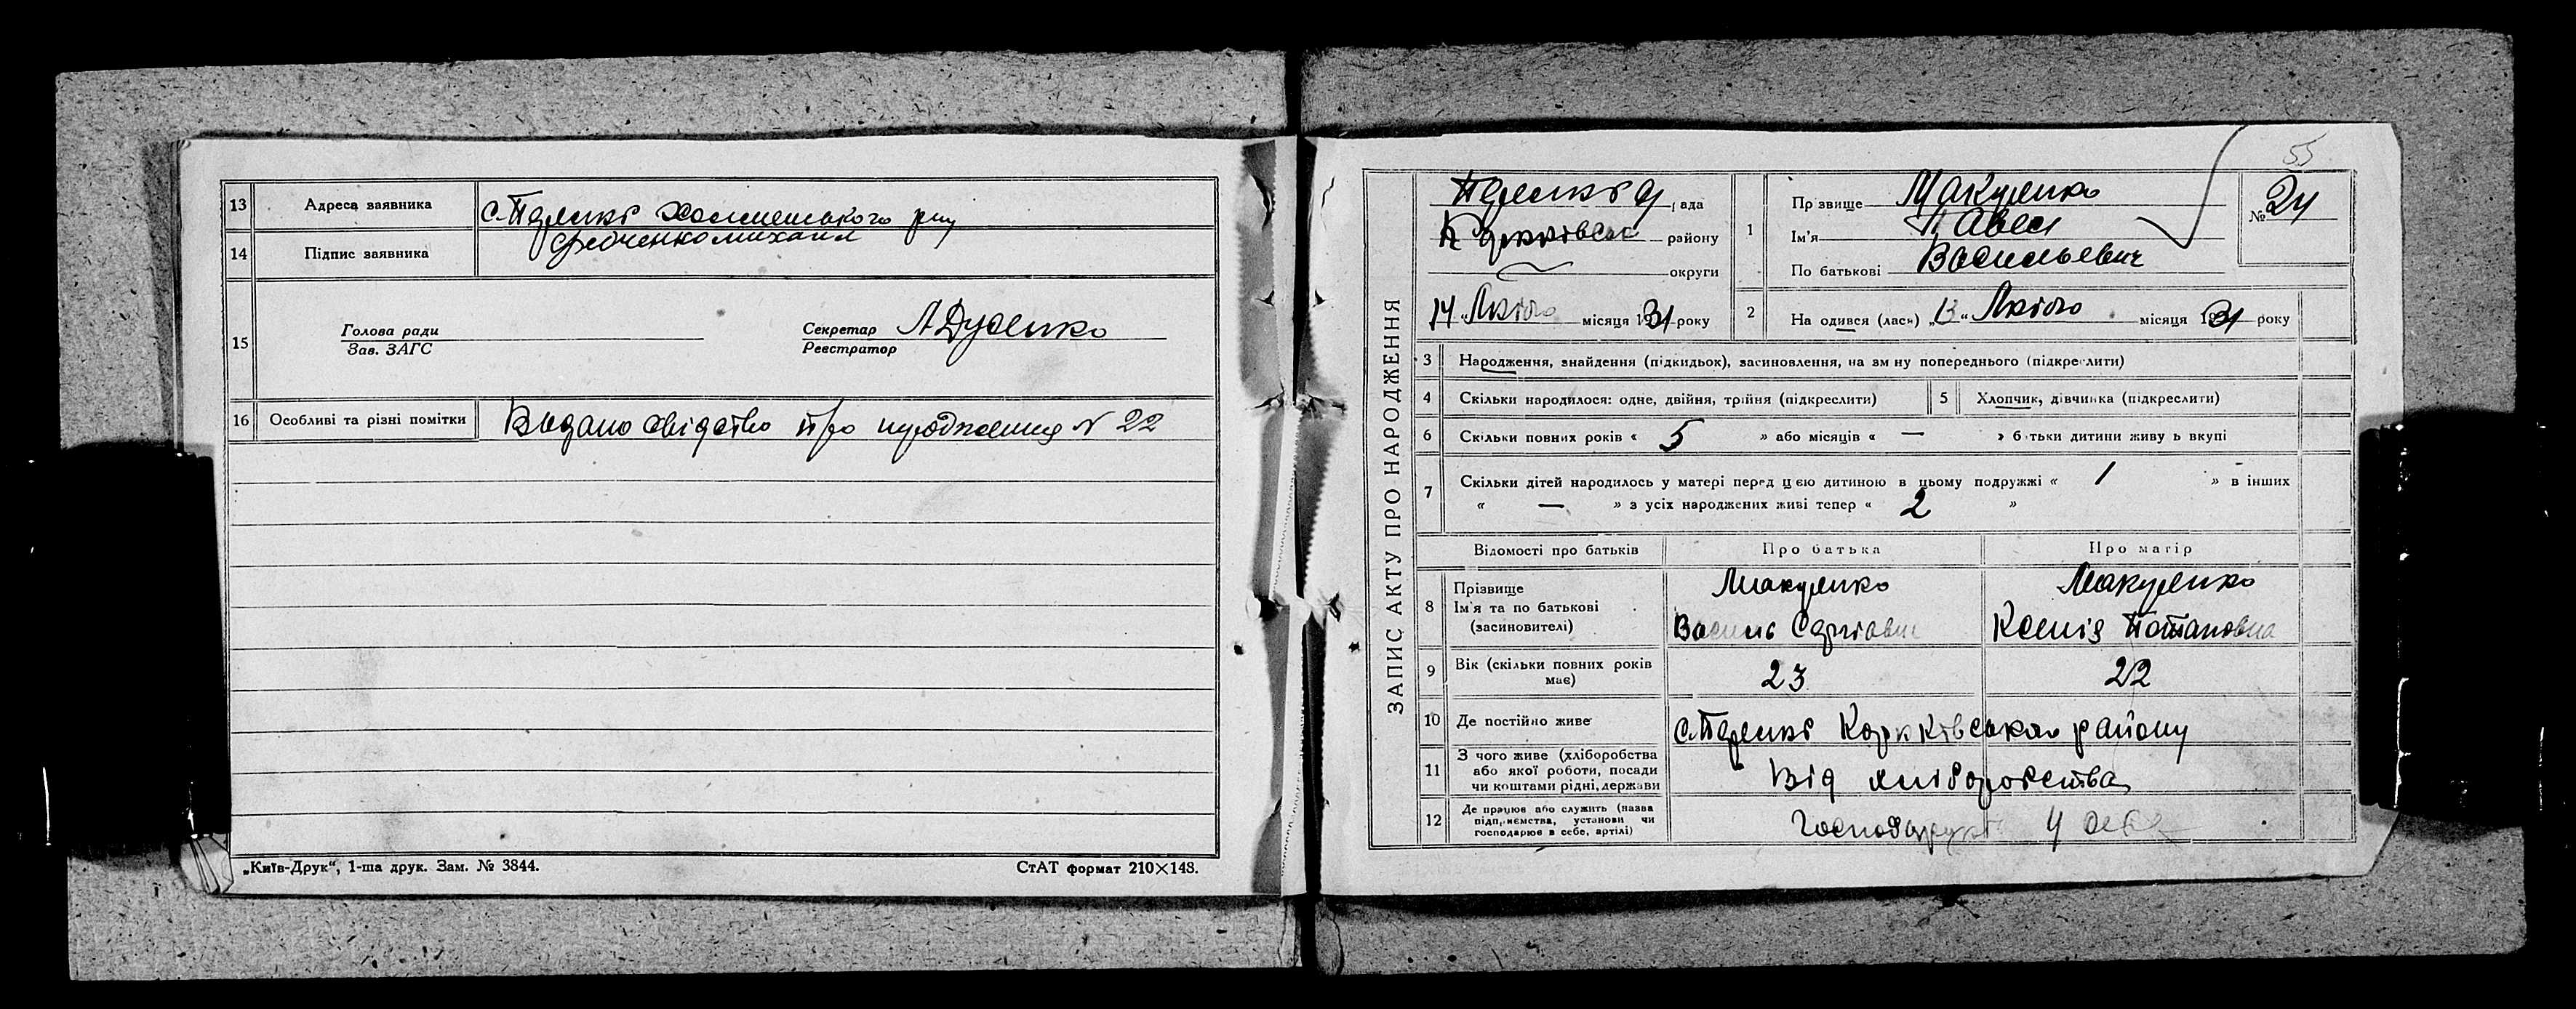 13 Адреса заявника с.
14 Підпис заявника
15 Голова ради
Зав. ЗАГС
Секретар
Реєстратор
А Дуденко
16 Особливі та різні помітки Видано свідство про народження № 22
„Київ-Друк“, 1-ша друк. Зам. № 3844.
СтАТ формат 210×148.
55
ЗАПИС АКТУ ПРО НАРОДЖЕННЯ
рада
району
округи
14 „ Лютого місяця 1931 року
1 Прізвище Макуренко
Ім'я Павел
По батькові Васильевич
№ 24
2 Народився (лась) „13“ Лютого місяця 1931 року
3 Народження, знайдення (підкидьок), засиновлення, на зміну попереднього (підкреслити)
4 Скільки народилося: одне, двійня, трійня (підкреслити)
5 Хлопчик, дівчинка (підкреслити)
6 Скільки повних років « 5 » або місяців « — » батьки дитини живуть вкупі
7 Скільки дітей народилось у матері перед цією дитиною в цьому подружжі « 1 » в інших
« — » з усіх народжених живі тепер « 2 »
Відомості про батьків Про батька Про матір
8 Прізвище
Ім'я та по батькові
(засиновителі)
Макуренко
Василь Сергіович
Макуренко
Ксенія Потаповна
9 Вік (скільки повних років
має)
23
22
10 Де постійно живе с. району
11 З чого живе (хліборобства
або якої роботи, посади
чи коштами рідні, держави
Від хліборобства
12 Де працює або служить (назва
підприємства, установи чи
господарює в себе, артілі)
у себе